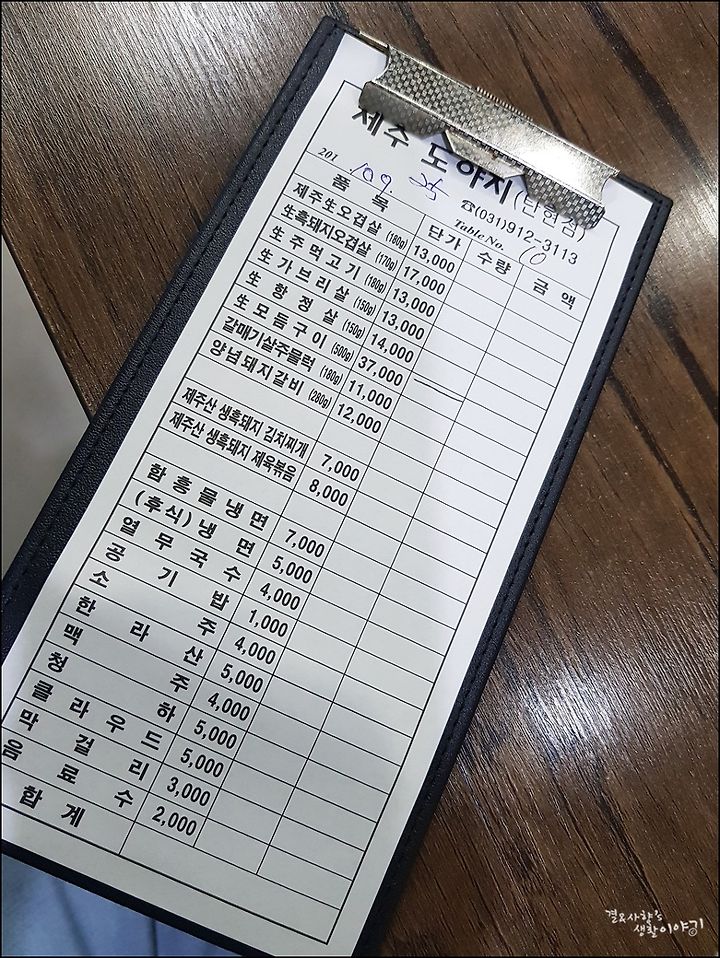 제주 도야지(탄현점)
☎(031)912-3113
201 . 9. 25 Table No. 10
품목 단가 수량 금액
제주生오겹살(180g) 13,000
生흑돼지오겹살(170g) 17,000
生주먹고기(180g) 13,000
生가브리살(150g) 13,000
生항정살(150g) 14,000
生모둠구이(500g) 37,000
갈매기살주물럭(180g) 11,000
양념돼지갈비(280g) 12,000
제주산 생흑돼지 김치찌개 7,000
제주산 생흑돼지 제육볶음 8,000
함흥물냉면 7,000
(후식)냉면 5,000
열무국수 4,000
공기밥 1,000
소주 4,000
한라산 5,000
맥주 4,000
청하 5,000
클라우드 5,000
막걸리 3,000
음료수 2,000
합계
결&사랑's
생활이야기